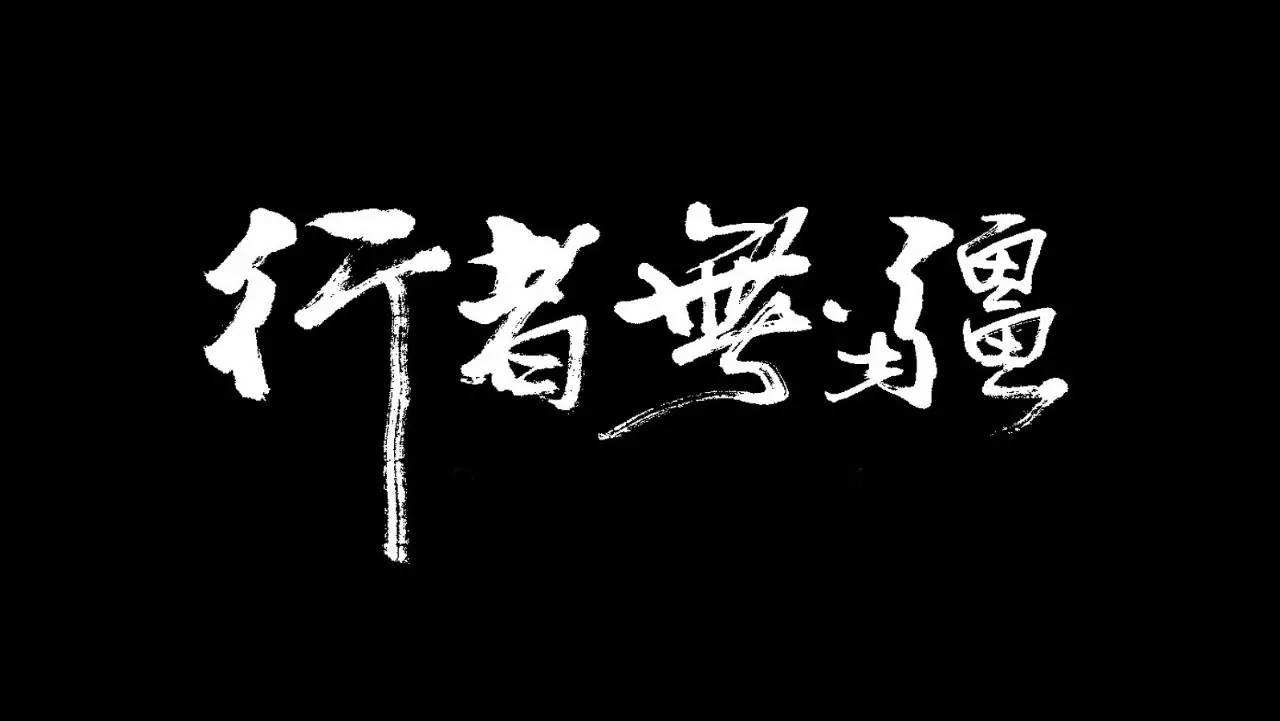 行者無疆